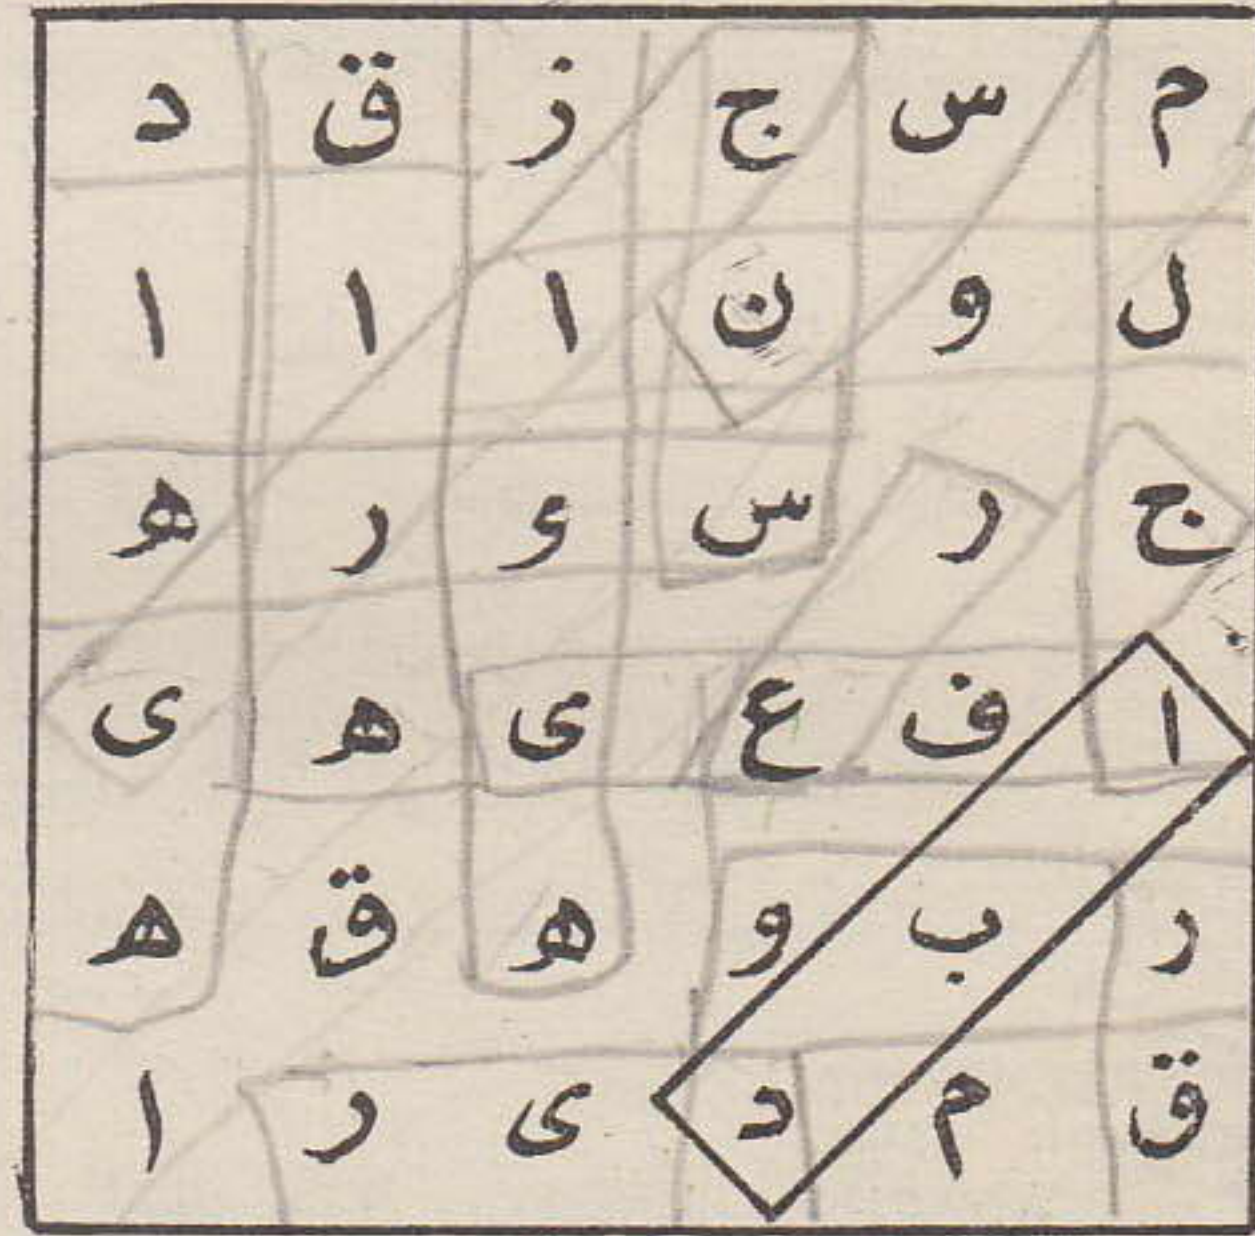 م س ج ز ق د
ل و ن ا ا ا
ج ر س و ر ه
ا ف ع ی ه ی
ر ب و ه ق ه
ق م د ی ر ا